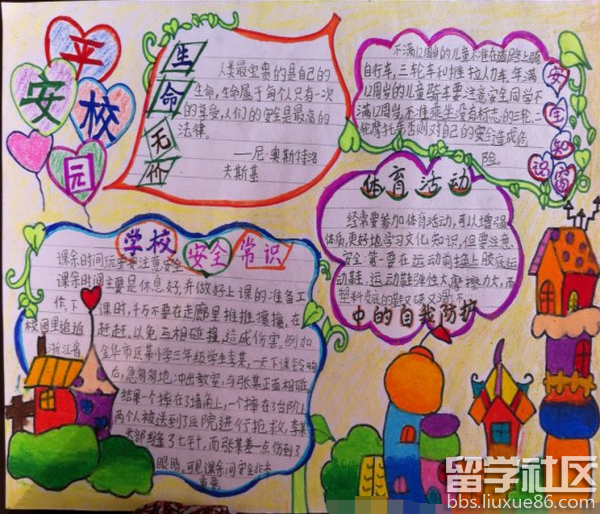 平安校园
生命无价
人类最宝贵的是自己的
生命,生命属于每个人只有一次
的享受,人们的安全是最高的
法律。
——尼·奥斯特洛
夫斯基
安全知识窗
不满12周岁的儿童不准在道路上骑
自行车,三轮车和推拉人力车,年满
12周岁的儿童骑车要注意安全同学不
满12周岁,不准乘坐没有标志的三轮二
轮摩托,否则对自己的安全造成危
险。
体育活动
经常要参加体育活动,可以增强
体质,更好地学习文化知识,但要注意
安全。第一要在运动前换上胶底运
动鞋,运动鞋弹性大摩擦力大,而
塑料皮底的鞋又硬又滑不
中的自我防护
学校安全常识
课余时间玩耍要注意安全
课余时间主要是休息好,并做好上课的准备工
作。下课时,千万不要在走廊里推推攘攘,在
校园里追追赶赶,以免互相碰撞,造成伤害。例如
浙江省金华市区某小学三年级学生李某,一天下课铃响
后,急匆匆地冲出教室,与张某正面相碰
结果一个撞在了墙角上,一个摔在了台阶上
两个人被送到了医院进行抢救,李某
头部缝了七针,而张某差一点伤到了
眼睛。可见课余间安全非常
重要。
留学社区
bbs.liuxue86.com